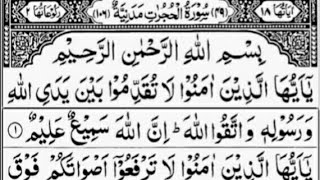 اٰيَاتُهَا ١٨ (٤٩) سُوْرَةُ الْحُجُرٰتِ مَدَنِيَّةٌ (١٠٦) رُكُوْعَاتُهَا
بِسْمِ اللّٰهِ الرَّحْمٰنِ الرَّحِيْمِ
يٰۤاَيُّهَا الَّذِيْنَ اٰمَنُوْا لَا تُقَدِّمُوْا بَيْنَ يَدَىِ اللّٰهِ
وَرَسُوْلِهٖ وَاتَّقُوا اللّٰهَ ؕ اِنَّ اللّٰهَ سَمِيْعٌ عَلِيْمٌ ١
يٰۤاَيُّهَا الَّذِيْنَ اٰمَنُوْا لَا تَرْفَعُوْۤا اَصْوَاتَكُمْ فَوْقَ